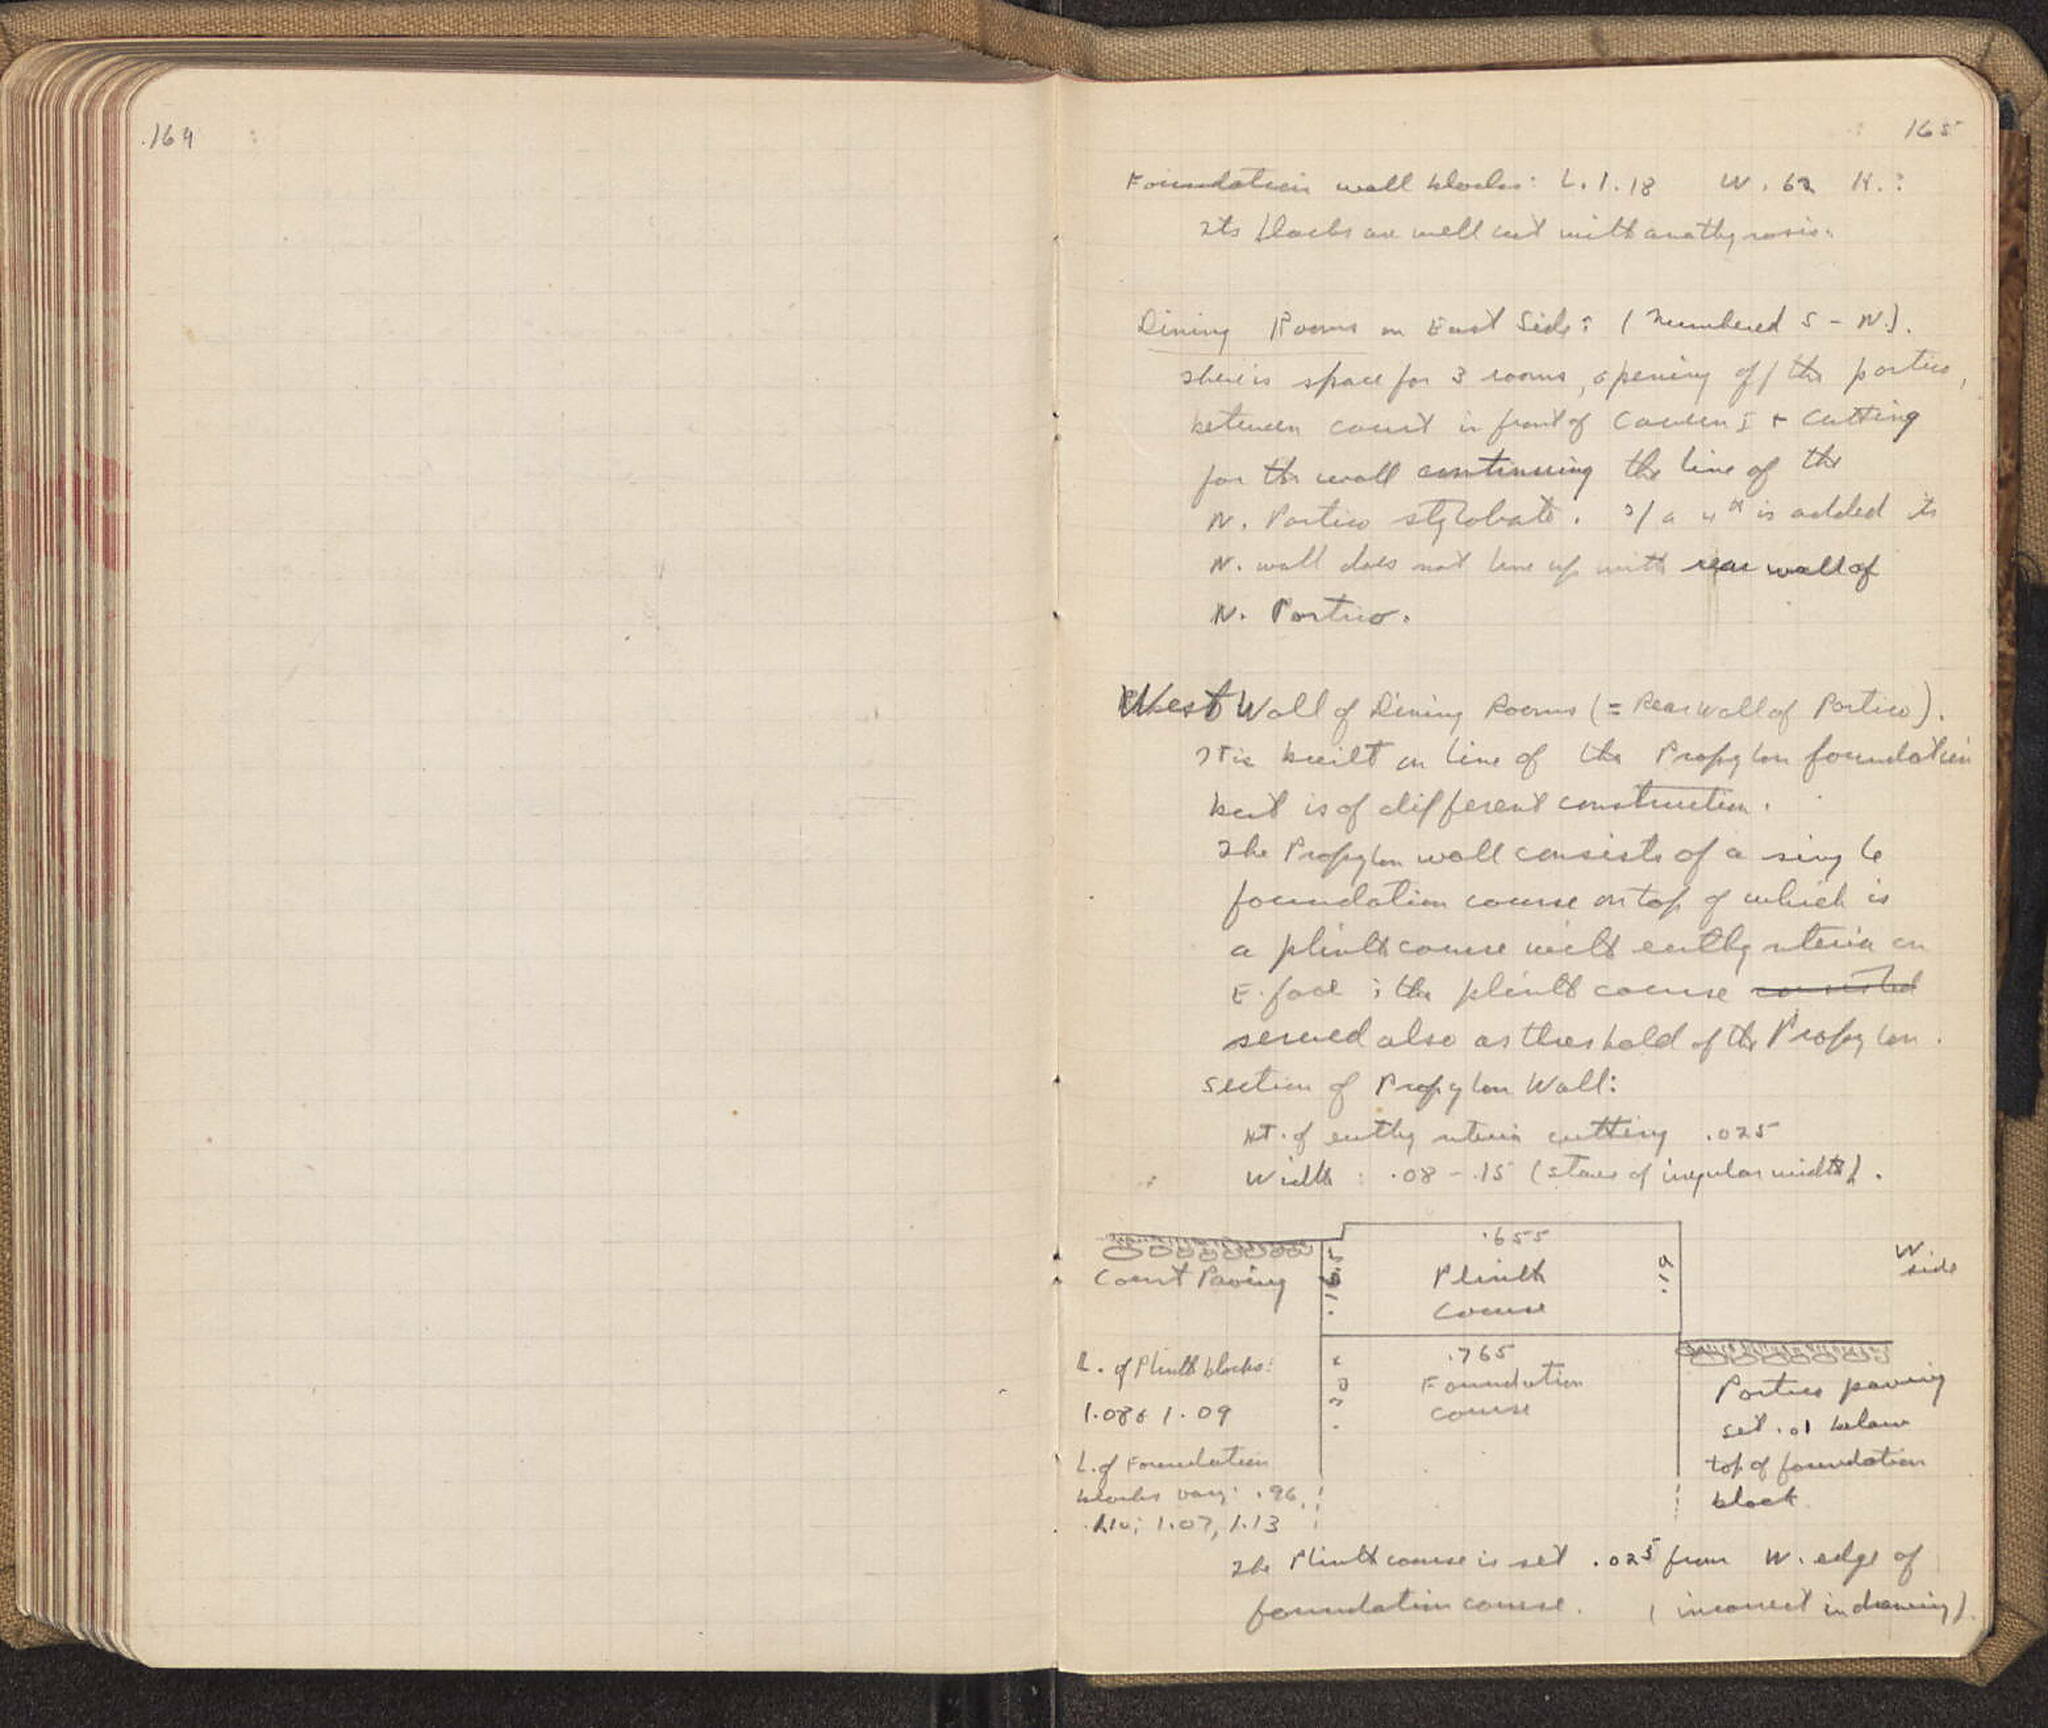 164
165
Foundation wall blocks: L. 1.18 W. .62 H. ?
Its blocks are well cut with anathyrosis.
Dining Rooms on East Side: (Numbered S - N.).
There is space for 3 rooms, opening off the portico,
between court in front of Cavern I + cutting
for the wall continuing the line of the
N. Portico stylobate. If a 4th is added its
N. wall does not line up with rear wall of
N. Portico.
West Wall of Dining Rooms (= Rear wall of Portico).
It is built on line of the Propylon foundation
but is of different construction.
The Propylon wall consists of a single
foundation course on top of which is
a plinth course with euthynteria on
E. face ; the plinth course consisted
served also as threshold of the Propylon.
Section of Propylon Wall:
Ht. of euthynteria cutting .025
Width : .08 - .15 (stones of irregular width).
.655
Plinth
course
.165
.19
W
side
Court Paving
L. of Plinth blocks:
1.086 1.09
.765
Foundation
course
Portico paving
set .01 below
top of foundation
block
L. of Foundation
blocks vary: .96,
1.07, 1.13
The Plinth course is set .025 from W. edge of
foundation course. (incorrect in drawing).